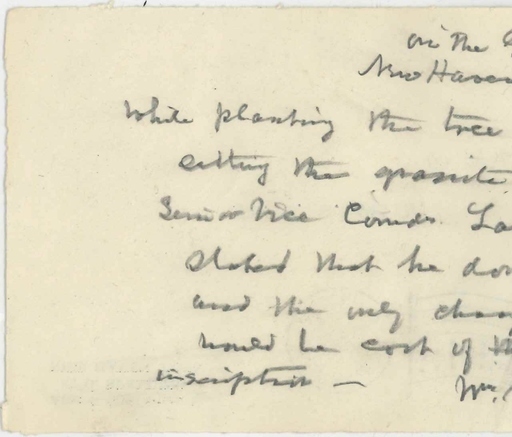 on the
New Haven
While planting the tree
setting the granite
Senior Vice Comdr. La
stated that he don
and the only char
would be cost of th
inscription — Wm.